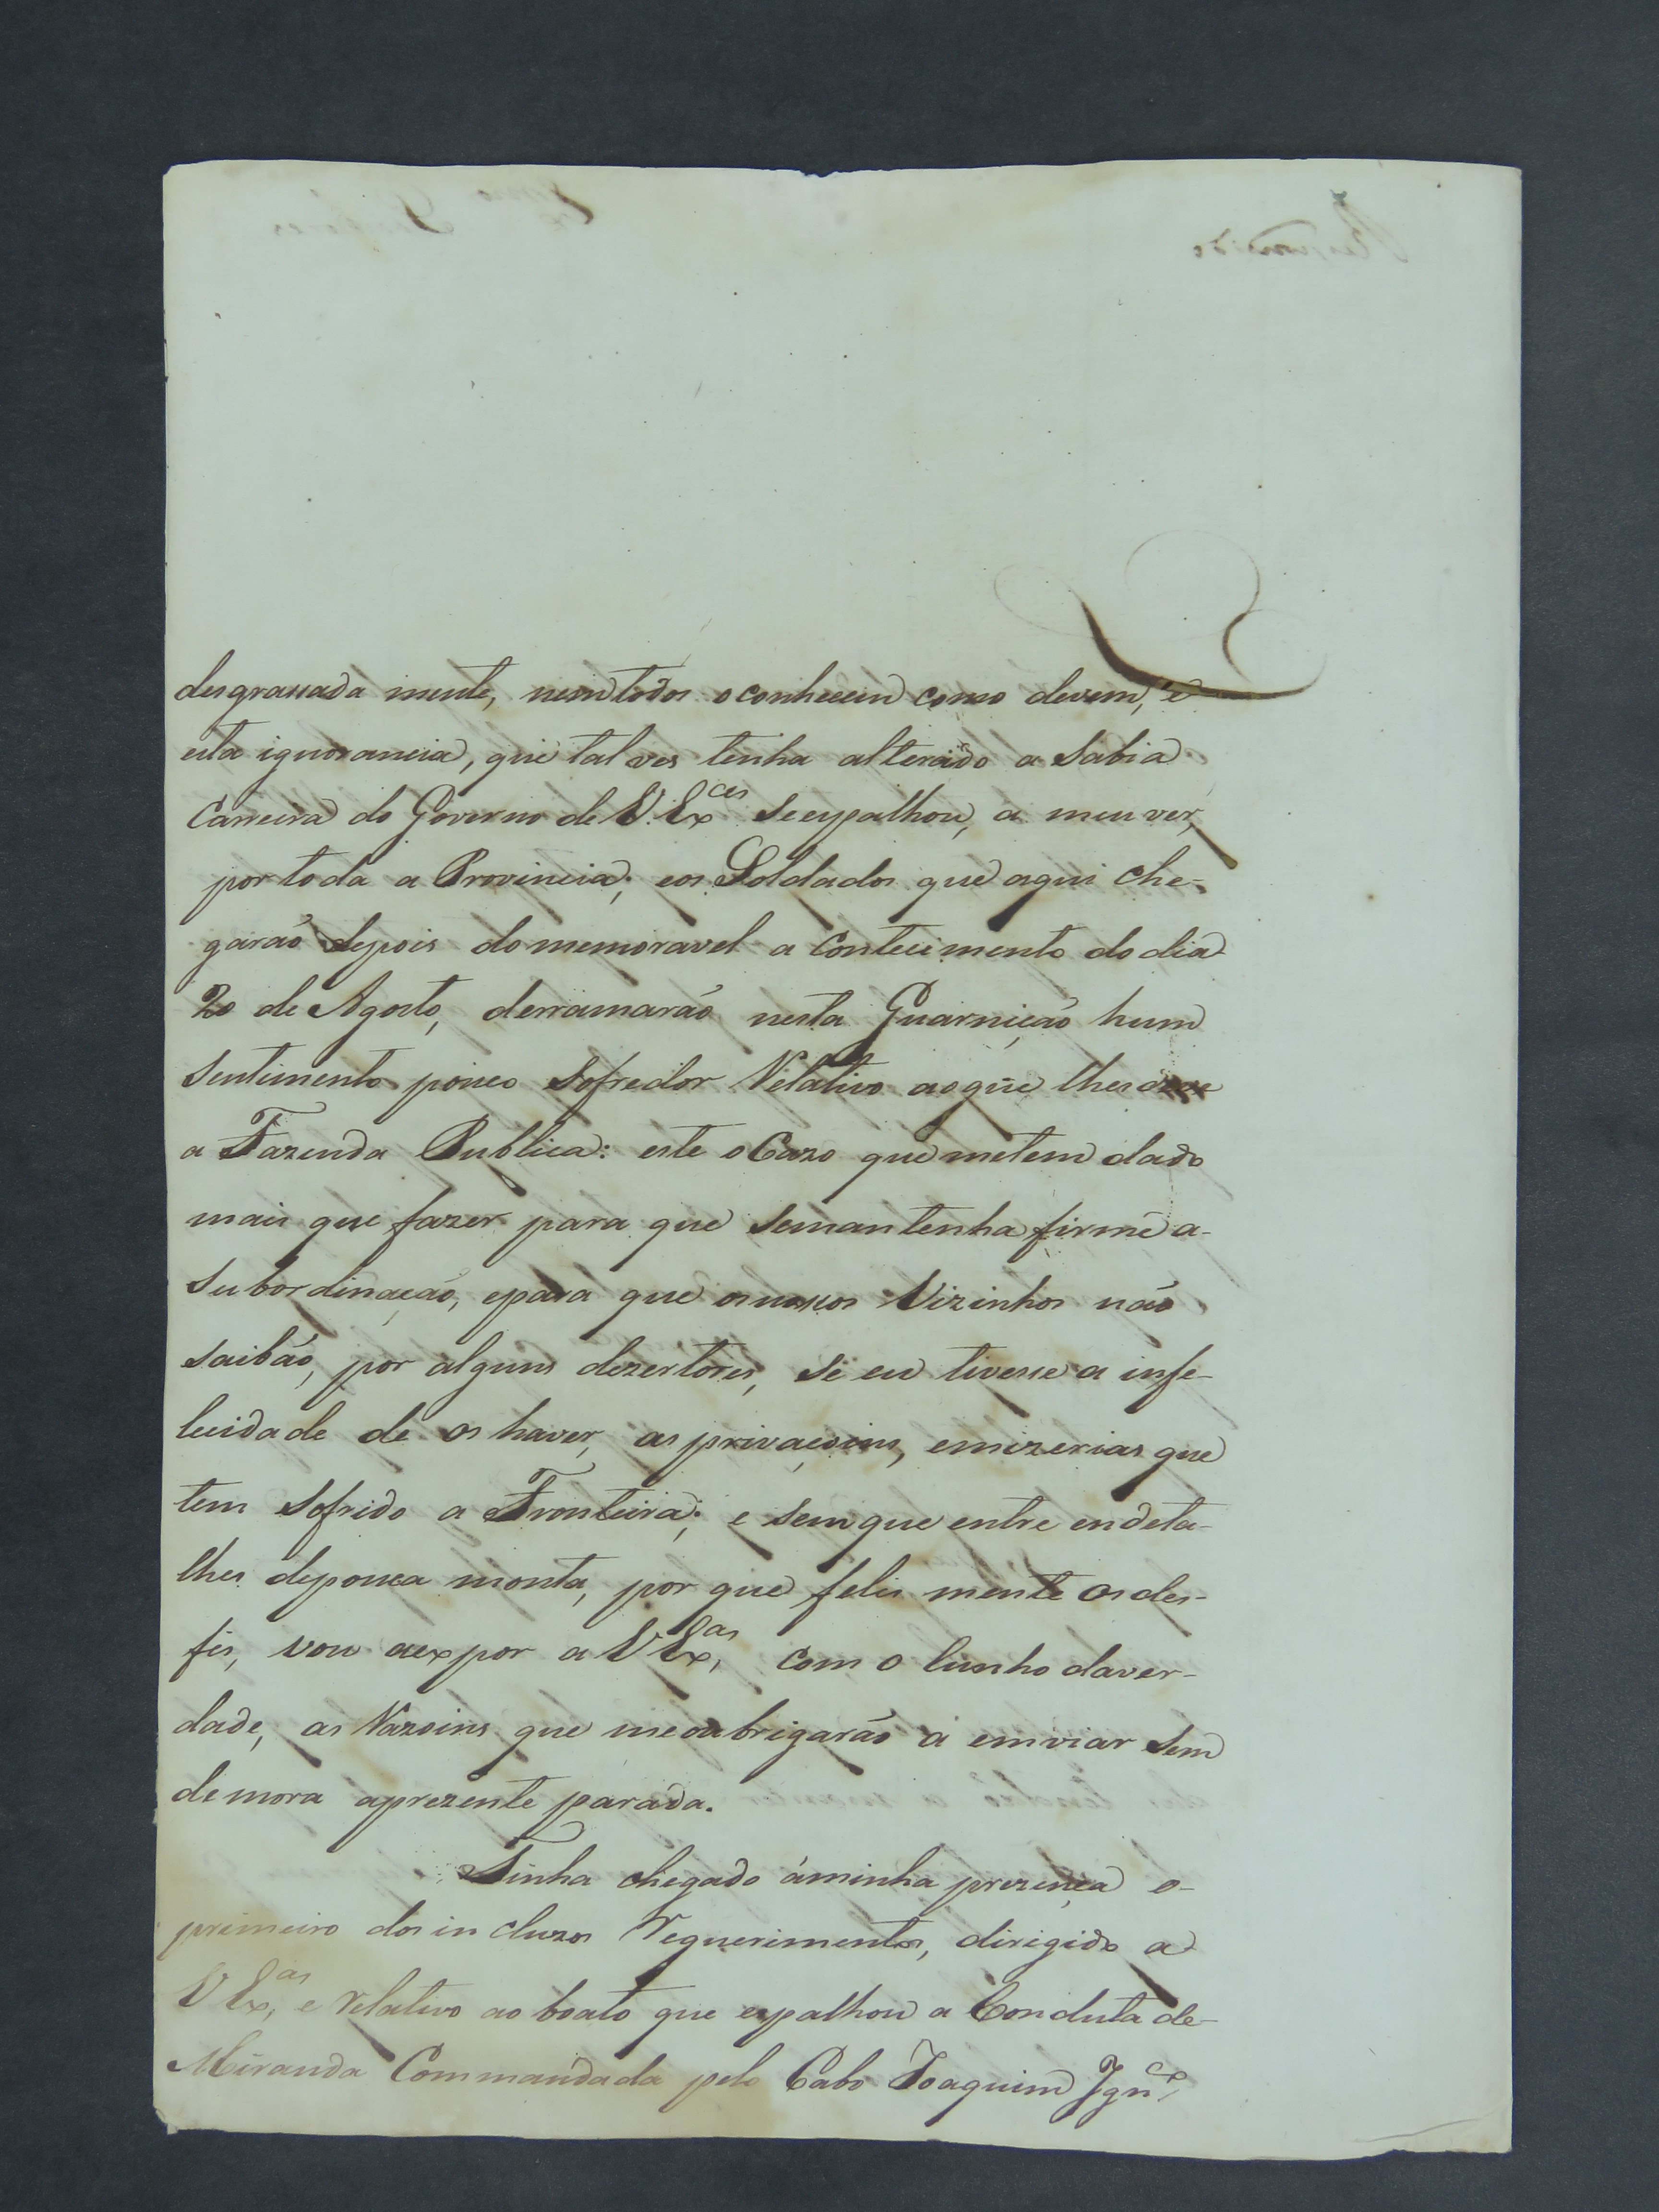 desgrassada mente, nem todos o conhecem como devem, e
esta ignorancia, que tal ves tenha alterado a sabia
Carreira do Governo de V. Ex.ces se espalhou, a meu ver,
por toda a Provincia; e os Soldados que aqui che-
garáo depois do memoravel a contecimento do dia
20 de Agosto, derramaráo nesta Guarnição hum
sentimento pouco sofredor Relativo ao que lhes deve
a Fazenda Publica: este o Cazo que me tem dado
mais que fazer para que se mantenha firme a-
subordinação, e para que os nossos Vizinhos não
saibáo, por alguns dezertores, se eu tivesse a infe-
licidade de os haver, as privaçoins, e mizerias que
tem sofrido a Fronteira; e sem que entre en deta-
lhes de pouca monta, por que felis mente os des-
fis, vou a expor a V Ex.as, com o Cunho da ver-
dade, as Razoins que me oubrigaráo a emviar sem
demora a prezente parada.
Tinha chegado á minha prezença o-
primeiro dos in cluzos Requerimentos, dirigido a
V Ex.as, e relativo ao boato que espalhou a Conduta de-
Miranda Commandada pelo Cabo Joaquim Ign.co